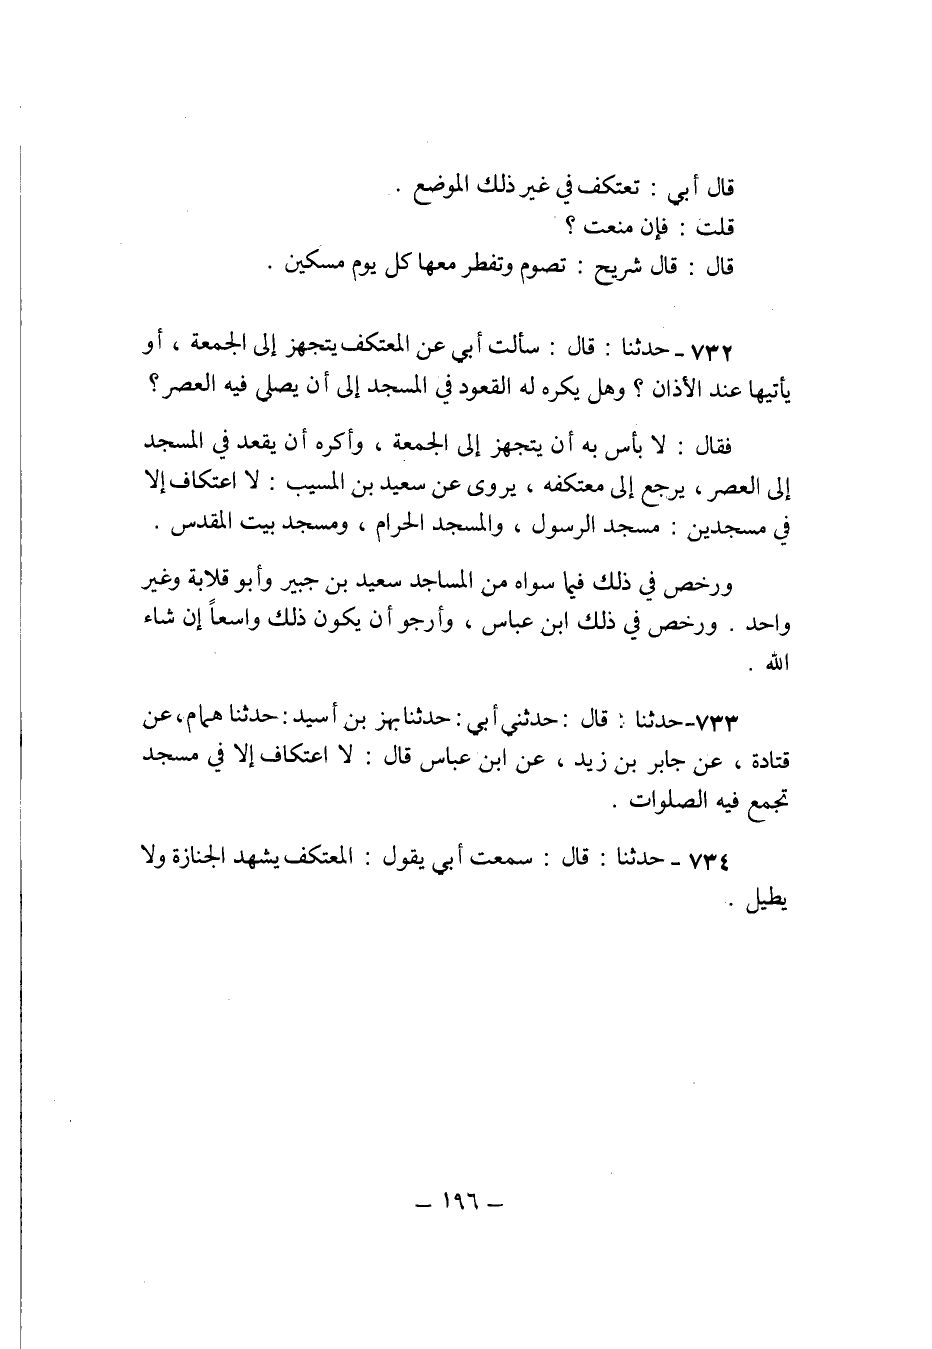 قال أبي : تعتكف في غير ذلك الموضع .
قلت : فإن منعت ؟
قال : قال شريح : تصوم وتفطر معها كل يوم مسكين .
٧٣٢ - حدثنا : قال : سألت أبي عن المعتكف يتجهز إلى الجمعة ، أو
يأتيها عند الأذان ؟ وهل يكره له القعود في المسجد إلى أن يصلي فيه العصر ؟
فقال : لا بأس به أن يتجهز إلى الجمعة ، وأكره أن يقعد في المسجد
إلى العصر ، يرجع إلى معتكفه ، يروى عن سعيد بن المسيب : لا اعتكاف إلا
في مسجدين : مسجد الرسول ، والمسجد الحرام ، ومسجد بيت المقدس .
ورخص في ذلك فيما سواه من المساجد سعيد بن جبير وأبو قلابة وغير
واحد . ورخص في ذلك ابن عباس ، وأرجو أن يكون ذلك واسعاً إن شاء
الله .
٧٣٣-حدثنا : قال : حدثني أبي : حدثنا بهز بن أسيد : حدثنا همام ، عن
قتادة ، عن جابر بن زيد ، عن ابن عباس قال : لا اعتكاف إلا في مسجد
تجمع فيه الصلوات .
٧٣٤ - حدثنا : قال : سمعت أبي يقول : المعتكف يشهد الجنازة ولا
يطيل .
– ١٩٦ –